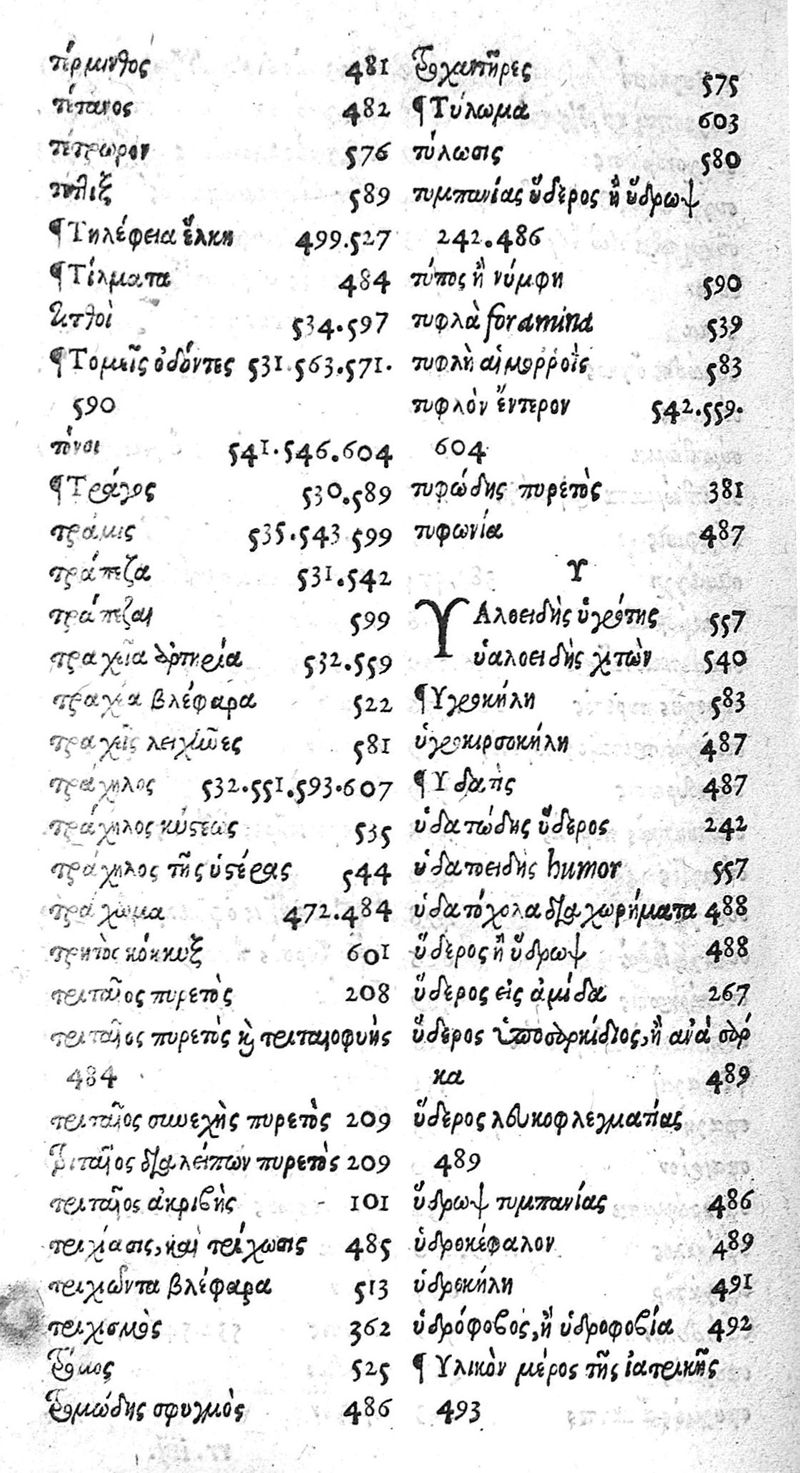 τέρμινθος 481
τέτανος 482
τέτρωρον 576
τῆλιξ 589
¶Τηλέφεια ἕλκη 499.527
¶Τίλματα 484
τιτθοὶ 534.597
¶Τομεῖς ὀδόντες 531.563.571.
590
τόνοι 541.546.604
¶Τράγος 530.589
τράμις 535.543 599
τράπεζα 531.542
τράπεζαι 599
τραχεῖα ἀρτηρία 532.559
τραχέα βλέφαρα 522
τραχεῖς λειχῆνες 581
τράχηλος 532.551.593.607
τράχηλος κύστεως 535
τράχηλος τῆς ὑστέρας 544
τράχωμα 472.484
τρητὸς κόκκυξ 601
τριταῖος πυρετὸς 208
τριταῖος πυρετὸς καὶ τριταιοφυὴς
484
τριταῖος συνεχὴς πυρετὸς 209
τριταῖος διαλείπων πυρετὸς 209
τριταῖος ἀκριβὴς 101
τριχίασις, καὶ τρίχωσις 485
τριχιῶντα βλέφαρα 513
τριχισμὸς 362
τρόμος 525
τρομώδης σφυγμὸς 486
τροχαντῆρες 575
¶Τύλωμα 603
τύλωσις 580
τυμπανίας ὕδερος ἢ ὕδρωψ
242.486
τύπος ἢ νύμφη 590
τυφλὰ foramina 539
τυφλὴ αἱμορροῒς 583
τυφλὸν ἔντερον 542.559.
604
τυφώδης πυρετὸς 381
τυφωνία 487
Υ
ΥΑλοειδὴς ὑγρότης 557
ὑαλοειδὴς χιτὼν 540
¶Υγροκήλη 583
ὑγροκιρσοκήλη 487
¶Υδατὶς 487
ὑδατώδης ὕδερος 242
ὑδατοειδὴς humor 557
ὑδατόχολα διαχωρήματα 488
ὕδερος ἢ ὕδρωψ 488
ὕδερος εἰς ἀμίδα 267
ὕδερος ὑποσαρκίδιος, ἢ ἀνὰ σάρ
κα 489
ὕδερος λευκοφλεγματίας
489
ὕδρωψ τυμπανίας 486
ὑδροκέφαλον 489
ὑδροκήλη 491
ὑδρόφοβος, ἢ ὑδροφοβία 492
¶Υλικὸν μέρος τῆς ἰατρικῆς
493